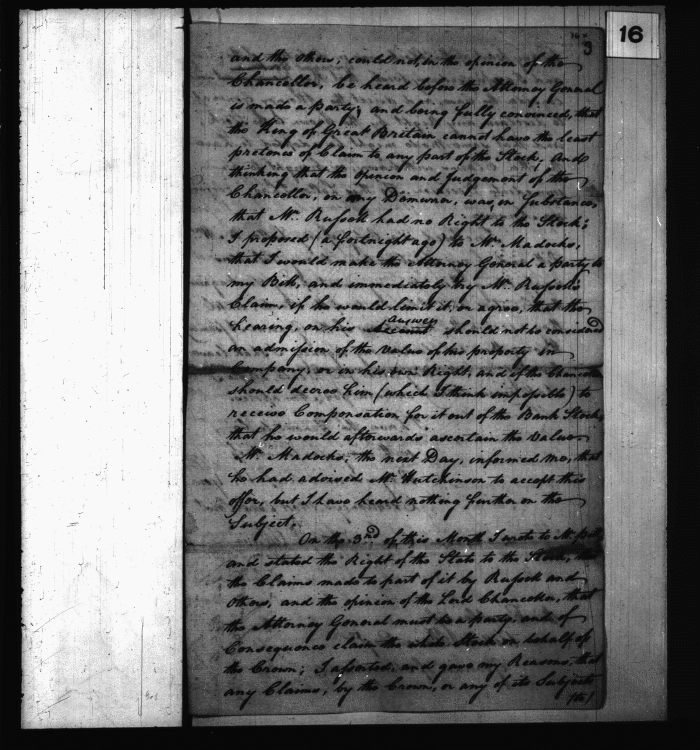 16
3
and the others, could not, in the opinion of the
Chancellor, be heard before the Attorney General
is made a party; and being fully convinced, that
the King of Great Britain cannot have the least
pretence of Claim to any part of the Stock, and
thinking that the opinion and Judgement of the
Chancellor, on any Demurrer, was, in Substance,
that Mr. Russell had no Right to the Stock;
I proposed (a fortnight ago) to Mr. Madocks,
that I would make the Attorney General a party to
my Bill, and immediately try Mr. Russell's
Claim, if he would limit it, or agree, that the
hearing, on his answer should not be considered
an admission of the value of his property in
Company, or in his own Right, and if the Chancellor
should decree him (which I think impossible) to
receive Compensation for it out of the Bank Stock,
that he would afterwards ascertain the value.
Mr. Madocks, the next Day, informed me, that
he had advised Mr. Hutchinson to accept this
offer, but I have heard nothing further on the
Subject.
On the 3rd of this Month I wrote to Mr.
and stated the Right of the State to the Stock,
the Claims made to part of it by Russell and
others, and the opinion of the Lord Chancellor, that
the Attorney General must be a party, and of
Consequence claim the whole Stock on behalf of
the Crown; I asserted, and gave my Reasons, that
any Claims, by the Crown, or any of its Subjects